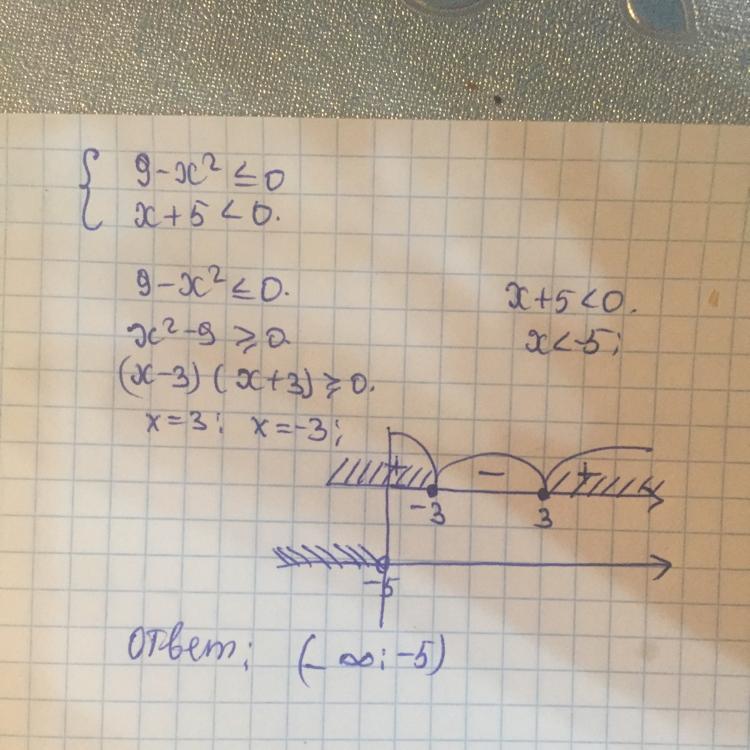 { 9-x² ≤ 0
x+5 < 0.
9-x² ≤ 0.
x²-9 ≥ 0
(x-3)(x+3) ≥ 0.
x=3; x=-3;
x+5<0.
x<-5;
+ - +
-3 3
-5
Ответ: (-∞; -5)